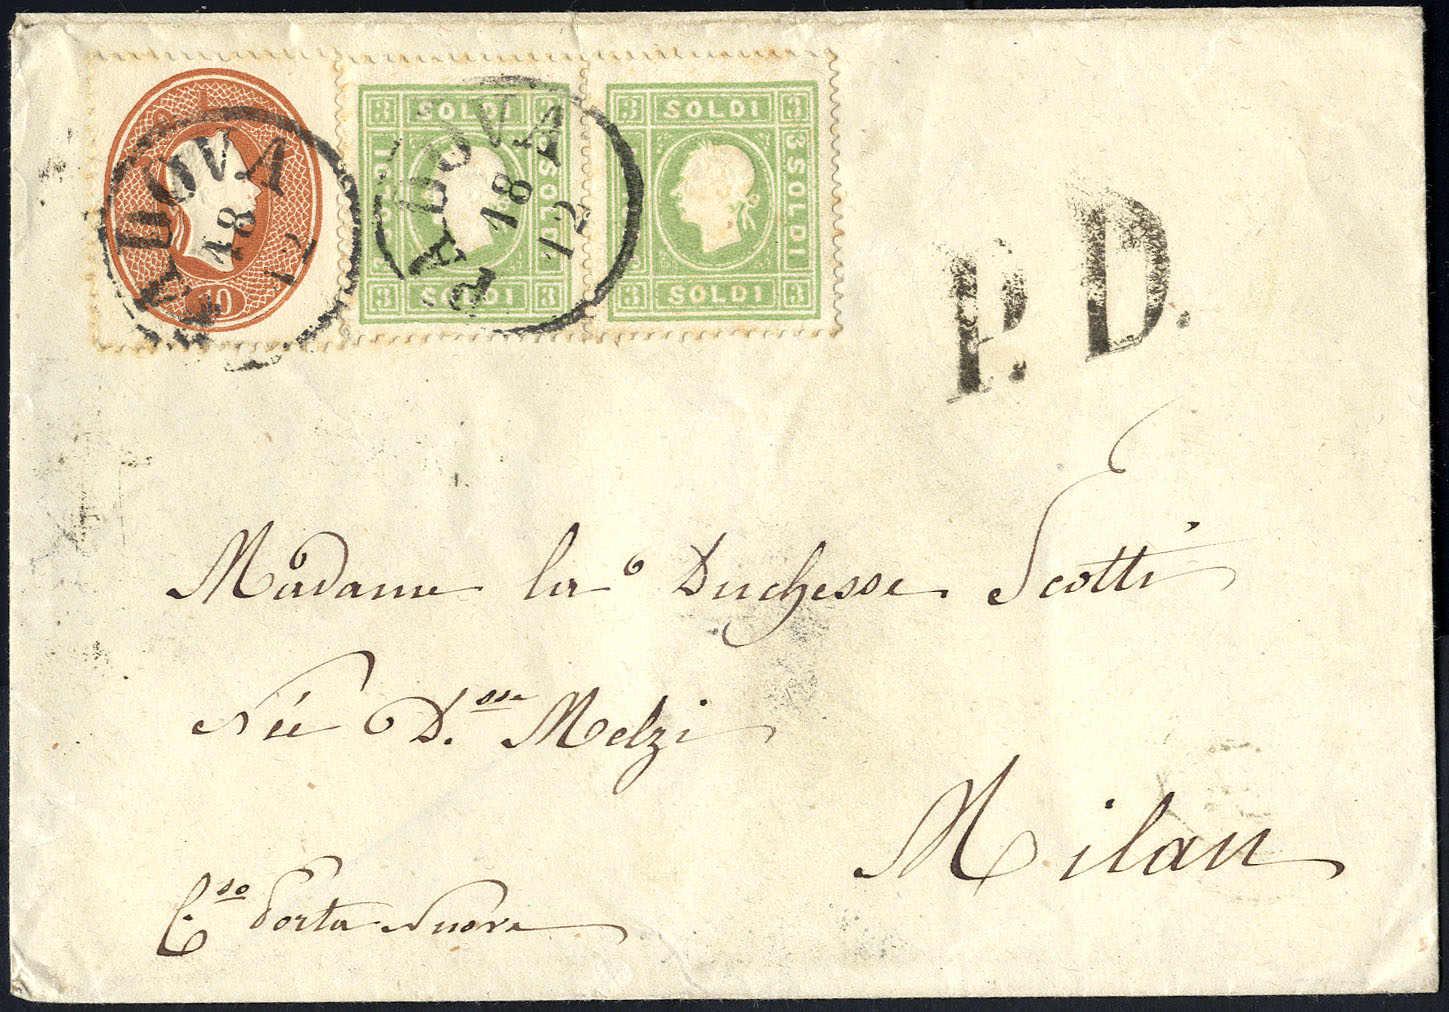 10
3 SOLDI 3
SOLDI
3 SOLDI 3
3 SOLDI 3
3 SOLDI
3 SOLDI 3
PADOVA
18
12
PADOVA
18
12
P. D.
Madame la Duchesse Scotti
Née D.sse Melzi
Milan
C.so Porta Nuova